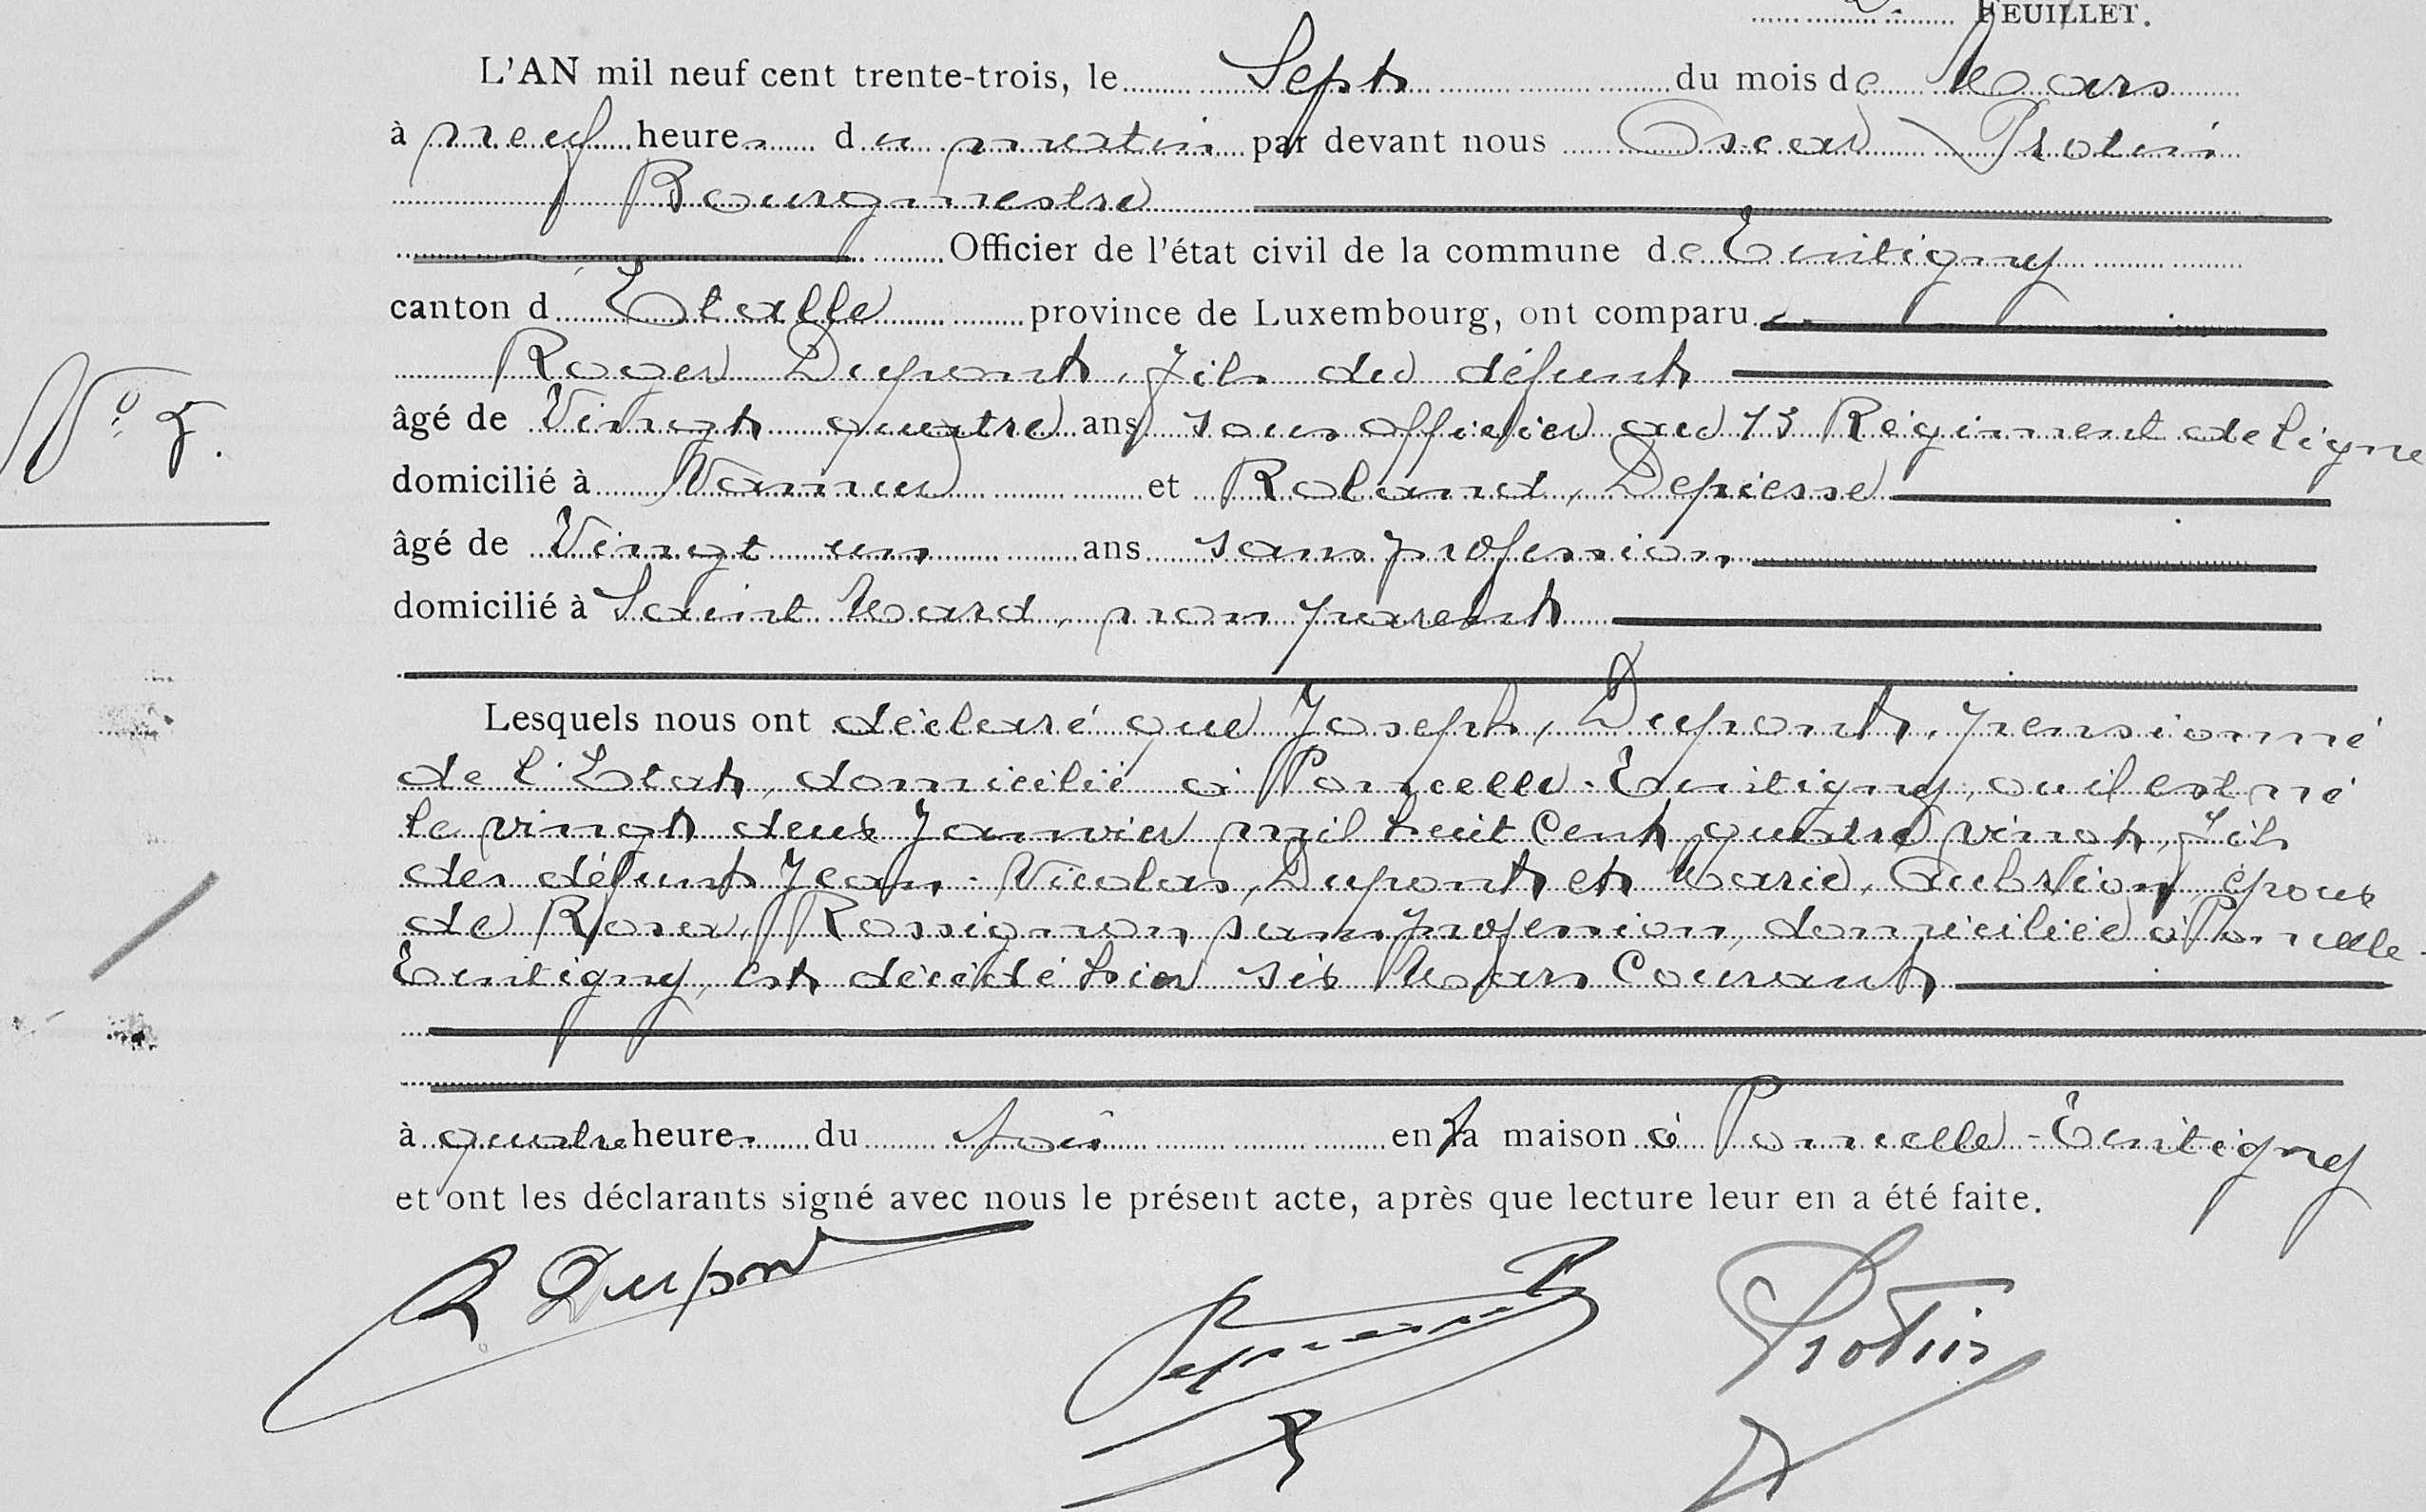 FEUILLET.
L'AN mil neuf cent trente-trois, le Sept du mois de Mars
à neuf heures du matin par devant nous Oscar, Protin
Bourgmestre
Officier de l'état civil de la commune de Tintigny
canton d Etalle province de Luxembourg, ont comparu
Roger Dupont, fils du défunt
âgé de Vingt quatre ans sous officier au 13 Régiment de ligne
N° 5.
domicilié à Namur et Roland, Depiesse
âgé de Vingt un ans sans profession,
domicilié à Saint Mard, non parent
Lesquels nous ont déclaré que Joseph, Dupont, pensionné
de l'Etat, domicilié à Poncelle-Tintigny, ou il est né
le vingt deux Janvier mil huit Cent quatre vingt, fils
des défunts Jean-Nicolas, Dupont et Marie, époux
de Rosa, Rossignon, sans profession, domiciliée à Poncelle-
Tintigny, est décédé hier six Mars Courant
à quatre heures du soir en sa maison à Poncelle-Tintigny
et ont les déclarants signé avec nous le présent acte, après que lecture leur en a été faite.
R Dupont
Protin